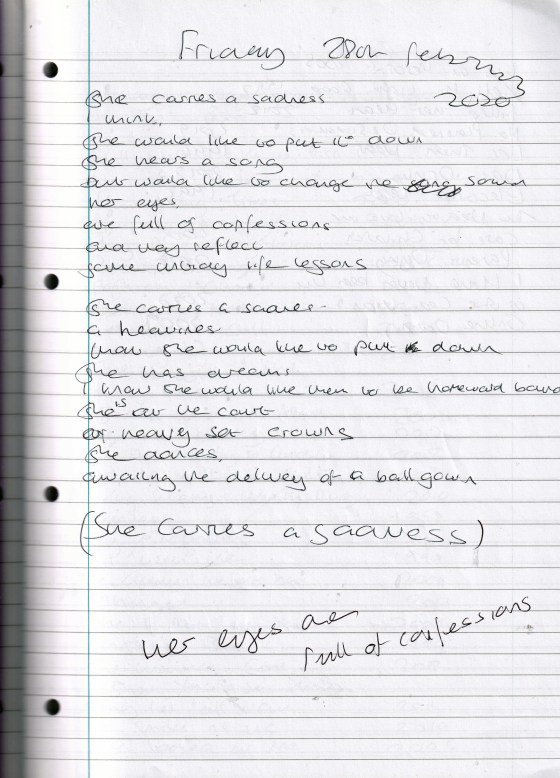 Friday 28th February
2020
She carries a sadness
I think,
She would like to put it down
She hears a song
but would like to change the song sound
her eyes,
are full of confessions
and they reflect
some untidy life lessons
She carries a sadness
a heaviness
I know she would like to put down
She has dreams
I know she would like them to be homeward bound
She's at the court
of heavy set crowns
She dances,
awaiting the delivery of a ball gown
(She carries a sadness)
her eyes are
full of confessions